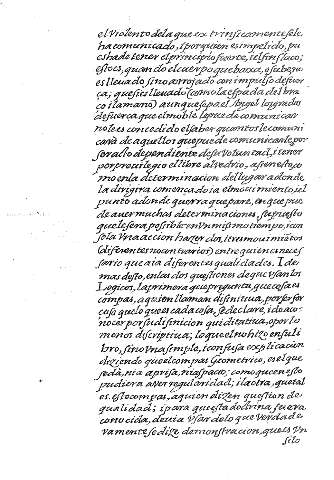 el Violento de la que extrinsicamente se le
ha comunicado, i por quien es impelido, pu
es ha de tener el principio fuerte, i el fin flaco;
esto es, quando el cuerpo que baxa, o sube, no
es llevado sino arrojado con impulso de fuer
ça, que si es llevado (como la espada del bra
ço i la mano) aunque sepa el Angel los grados
de fuerça que el moble es capaz de comunicar
no le es concedido el saber quantos le comuni
cará de aquellos que puede comunicarle, por
ser acto dependiente de su Voluntad, i tenor
por privilegio el libre alvedrio, assi en esto, co
mo en la determinacion del lugar a donde
la dirigira començado ia el movimiento, i el
punto a donde querra que pare, en que pue
de aver muchas determinaciones, supuesto
que le sera possible en Un mismo tiempo, i con
sola Una accion hazer dos, i tres movimientos
(diferentes no contrarios) entre quien es nece
ssario que aia diferentes qualidades. I de
mas desto, en las dos questiones de que Usan los
Logicos, la primera que pregunta, que cosa es
compas, a quien llaman difinitiva, por ser for
çoso que lo que es cada cosa, se declare, i de a co
nocer por su difinicion quiditativa, o por lo
menos discriptiva; lo que el no hizo en su li
bro, sino Una simple, i confusa explicacion
diziendo que el compas Geometrico, es el que
se da, ni a priesa, ni a espacio; como que en esto
pudiera aver regularidad; i la otra, que tal
es este compas, a quien dizen question de
qualidad; i para que esta dotrina fuera
conocida, devia Usar de lo que Verdade
ramente se dize demonstracion, que es Un
silo